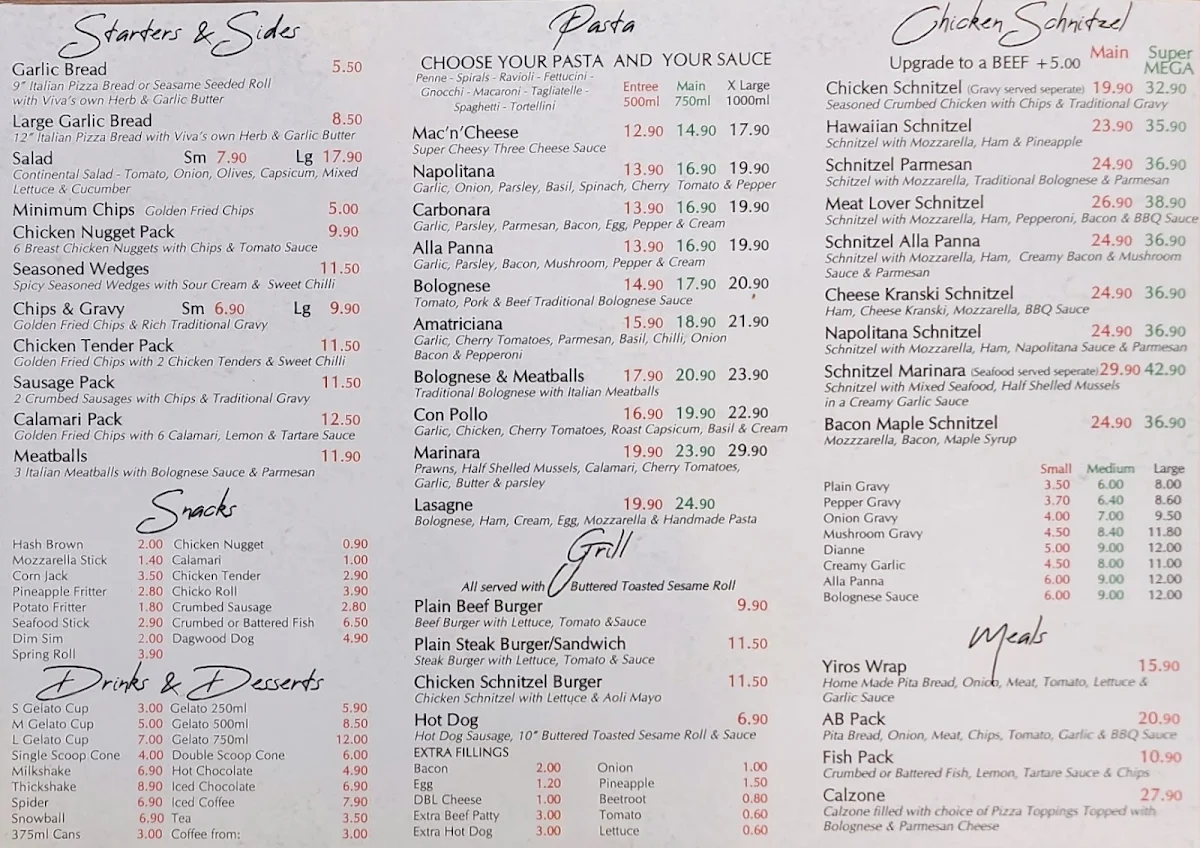 Starters & Sides
Garlic Bread 5.50
9" Italian Pizza Bread or Seasame Seeded Roll
with Viva's own Herb & Garlic Butter
Large Garlic Bread 8.50
12" Italian Pizza Bread with Viva's own Herb & Garlic Butter
Salad Sm 7.90 Lg 17.90
Continental Salad - Tomato, Onion, Olives, Capsicum, Mixed
Lettuce & Cucumber
Minimum Chips Golden Fried Chips 5.00
Chicken Nugget Pack 9.90
6 Breast Chicken Nuggets with Chips & Tomato Sauce
Seasoned Wedges 11.50
Spicy Seasoned Wedges with Sour Cream & Sweet Chilli
Chips & Gravy Sm 6.90 Lg 9.90
Golden Fried Chips & Rich Traditional Gravy
Chicken Tender Pack 11.50
Golden Fried Chips with 2 Chicken Tenders & Sweet Chilli
Sausage Pack 11.50
2 Crumbed Sausages with Chips & Traditional Gravy
Calamari Pack 12.50
Golden Fried Chips with 6 Calamari, Lemon & Tartare Sauce
Meatballs 11.90
3 Italian Meatballs with Bolognese Sauce & Parmesan
Snacks
Hash Brown 2.00 Chicken Nugget 0.90
Mozzarella Stick 1.40 Calamari 1.00
Corn Jack 3.50 Chicken Tender 2.90
Pineapple Fritter 2.80 Chicko Roll 3.90
Potato Fritter 1.80 Crumbed Sausage 2.80
Seafood Stick 2.90 Crumbed or Battered Fish 6.50
Dim Sim 2.00 Dagwood Dog 4.90
Spring Roll 3.90
Drinks & Desserts
S Gelato Cup 3.00 Gelato 250ml 5.90
M Gelato Cup 5.00 Gelato 500ml 8.50
L Gelato Cup 7.00 Gelato 750ml 12.00
Single Scoop Cone 4.00 Double Scoop Cone 6.00
Milkshake 6.90 Hot Chocolate 4.90
Thickshake 8.90 Iced Chocolate 6.90
Spider 6.90 Iced Coffee 7.90
Snowball 6.90 Tea 3.50
375ml Cans 3.00 Coffee from: 3.00
Pasta
CHOOSE YOUR PASTA AND YOUR SAUCE
Penne - Spirals - Ravioli - Fettucini -
Gnocchi - Macaroni - Tagliatelle -
Spaghetti - Tortellini
Entree Main X Large
500ml 750ml 1000ml
Mac'n'Cheese 12.90 14.90 17.90
Super Cheesy Three Cheese Sauce
Napolitana 13.90 16.90 19.90
Garlic, Onion, Parsley, Basil, Spinach, Cherry Tomato & Pepper
Carbonara 13.90 16.90 19.90
Garlic, Parsley, Parmesan, Bacon, Egg, Pepper & Cream
Alla Panna 13.90 16.90 19.90
Garlic, Parsley, Bacon, Mushroom, Pepper & Cream
Bolognese 14.90 17.90 20.90
Tomato, Pork & Beef Traditional Bolognese Sauce
Amatriciana 15.90 18.90 21.90
Garlic, Cherry Tomatoes, Parmesan, Basil, Chilli, Onion
Bacon & Pepperoni
Bolognese & Meatballs 17.90 20.90 23.90
Traditional Bolognese with Italian Meatballs
Con Pollo 16.90 19.90 22.90
Garlic, Chicken, Cherry Tomatoes, Roast Capsicum, Basil & Cream
Marinara 19.90 23.90 29.90
Prawns, Half Shelled Mussels, Calamari, Cherry Tomatoes,
Garlic, Butter & parsley
Lasagne 19.90 24.90
Bolognese, Ham, Cream, Egg, Mozzarella & Handmade Pasta
Grill
All served with Buttered Toasted Sesame Roll
Plain Beef Burger 9.90
Beef Burger with Lettuce, Tomato &Sauce
Plain Steak Burger/Sandwich 11.50
Steak Burger with Lettuce, Tomato & Sauce
Chicken Schnitzel Burger 11.50
Chicken Schnitzel with Lettuce & Aoli Mayo
Hot Dog 6.90
Hot Dog Sausage, 10" Buttered Toasted Sesame Roll & Sauce
EXTRA FILLINGS
Bacon 2.00 Onion 1.00
Egg 1.20 Pineapple 1.50
DBL Cheese 1.00 Beetroot 0.80
Extra Beef Patty 3.00 Tomato 0.60
Extra Hot Dog 3.00 Lettuce 0.60
Chicken Schnitzel
Upgrade to a BEEF +5.00 Main Super
MEGA
Chicken Schnitzel (Gravy served seperate) 19.90 32.90
Seasoned Crumbed Chicken with Chips & Traditional Gravy
Hawaiian Schnitzel 23.90 35.90
Schnitzel with Mozzarella, Ham & Pineapple
Schnitzel Parmesan 24.90 36.90
Schitzel with Mozzarella, Traditional Bolognese & Parmesan
Meat Lover Schnitzel 26.90 38.90
Schnitzel with Mozzarella, Ham, Pepperoni, Bacon & BBQ Sauce
Schnitzel Alla Panna 24.90 36.90
Schnitzel with Mozzarella, Ham, Creamy Bacon & Mushroom
Sauce & Parmesan
Cheese Kranski Schnitzel 24.90 36.90
Ham, Cheese Kranski, Mozzarella, BBQ Sauce
Napolitana Schnitzel 24.90 36.90
Schnitzel with Mozzarella, Ham, Napolitana Sauce & Parmesan
Schnitzel Marinara (Seafood served seperate) 29.90 42.90
Schnitzel with Mixed Seafood, Half Shelled Mussels
in a Creamy Garlic Sauce
Bacon Maple Schnitzel 24.90 36.90
Mozzzarella, Bacon, Maple Syrup
Small Medium Large
Plain Gravy 3.50 6.00 8.00
Pepper Gravy 3.70 6.40 8.60
Onion Gravy 4.00 7.00 9.50
Mushroom Gravy 4.50 8.40 11.80
Dianne 5.00 9.00 12.00
Creamy Garlic 4.50 8.00 11.00
Alla Panna 6.00 9.00 12.00
Bolognese Sauce 6.00 9.00 12.00
Meals
Yiros Wrap 15.90
Home Made Pita Bread, Onion, Meat, Tomato, Lettuce &
Garlic Sauce
AB Pack 20.90
Pita Bread, Onion, Meat, Chips, Tomato, Garlic & BBQ Sauce
Fish Pack 10.90
Crumbed or Battered Fish, Lemon, Tartare Sauce & Chips
Calzone 27.90
Calzone filled with choice of Pizza Toppings Topped with
Bolognese & Parmesan Cheese